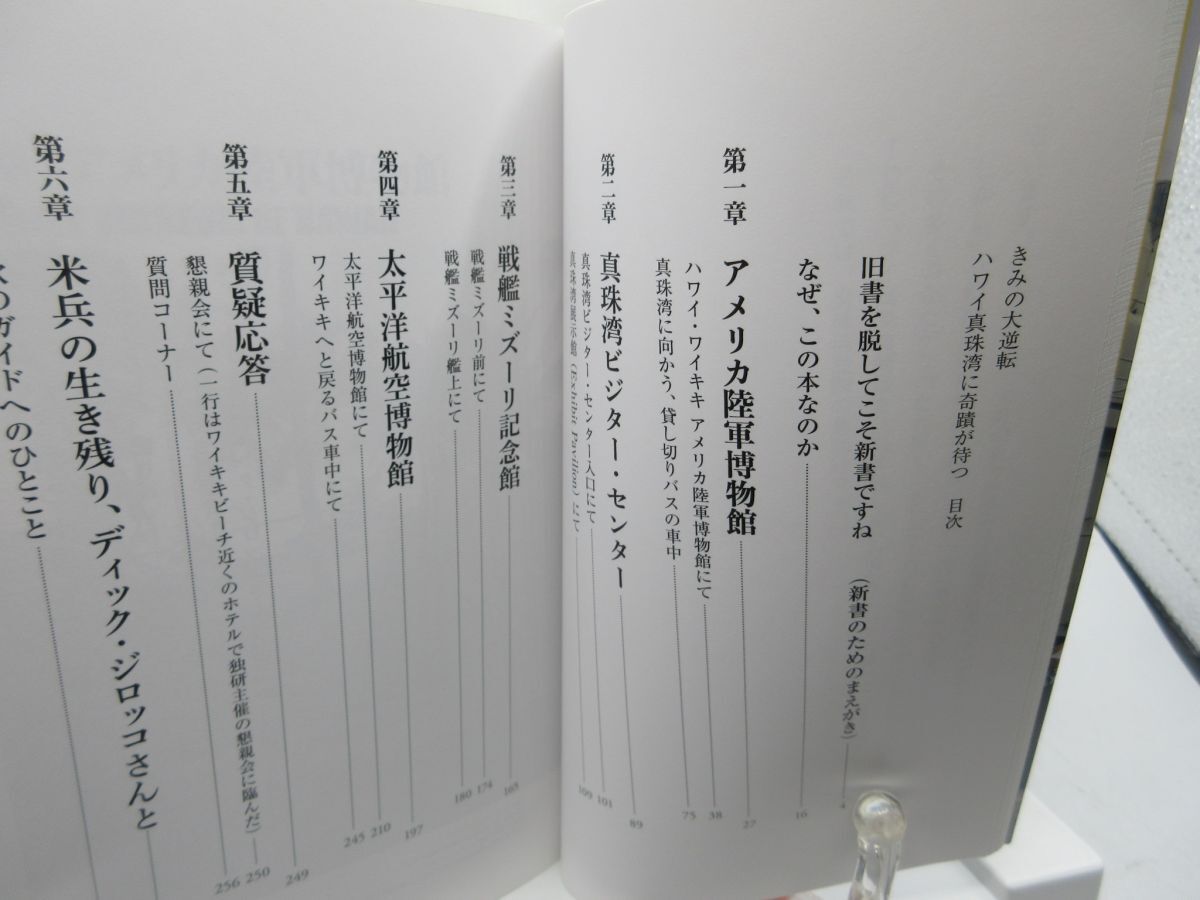 きみの大逆転
ハワイ真珠湾に奇蹟が待つ　目次
旧書を脱してこそ新書ですね　（新書のためのまえがき） 4
なぜ、この本なのか 16
第一章　アメリカ陸軍博物館 27
ハワイ・ワイキキ アメリカ陸軍博物館にて 38
真珠湾に向かう、貸し切りバスの車中 75
第二章　真珠湾ビジター・センター 89
真珠湾ビジター・センター入口にて 101
真珠湾展示館（Exhibit Pavilion）にて 109
第三章　戦艦ミズーリ記念館 165
戦艦ミズーリ前にて 174
戦艦ミズーリ艦上にて 180
第四章　太平洋航空博物館 197
太平洋航空博物館にて 210
ワイキキへと戻るバス車中にて 245
第五章　質疑応答 249
懇親会にて（一行はワイキキビーチ近くのホテルで独研主催の懇親会に臨んだ） 250
質問コーナー 256
第六章　米兵の生き残り、ディック・ジロッコさんと
のガイドへのひとこと